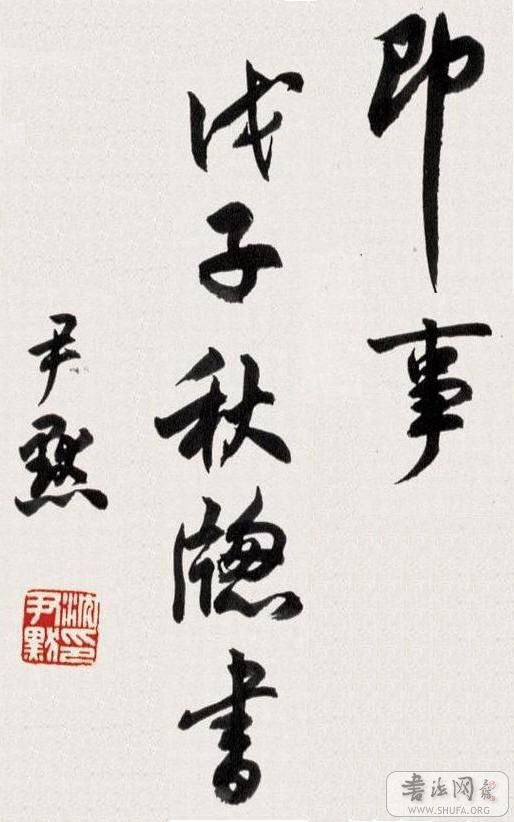 即事
戊子秋牕書
尹默
沈尹默印
書法网
WWW.SHUFA.ORG